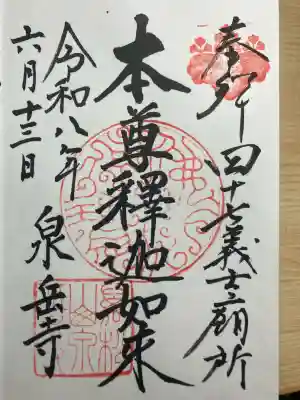 奉拜 四十七義士廟所
本尊釋迦如来
令和八年
六月十三日
泉岳寺